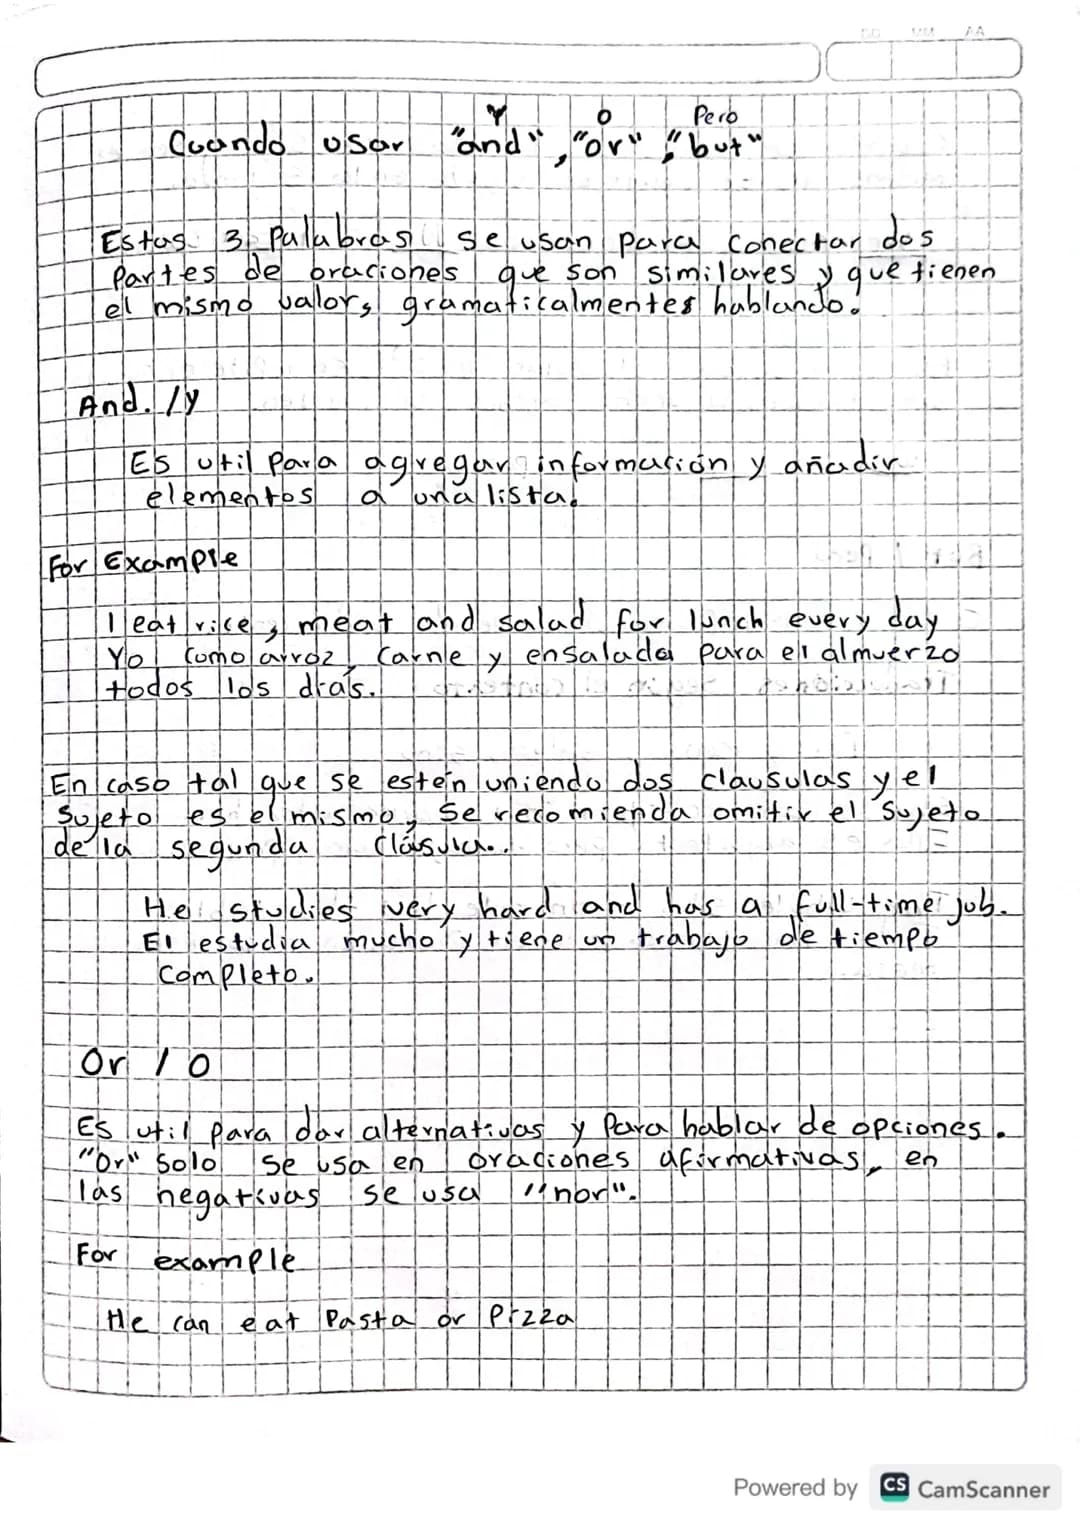 DD MM AA
Y O Pero
Cuando usar "and", "or", "but"
Estas 3 Palabras se usan para conectar dos
Partes de oraciones que son similares y que tienen
el mismo valor, gramaticalmentes hablando.
And. / y
Es util Para agregar información y añadir
elementos a una lista.
For Example
I eat rice, meat and salad for lunch every day
Yo como arroz, carne y ensalada para el almuerzo
todos los días.
En caso tal que se estén uniendo dos clausulas y el
Sujeto es el mismo, se recomienda omitir el sujeto
de la segunda clásula.
He studies very hard and has a full-time job.
El estudia mucho y tiene un trabajo de tiempo
completo.
Or / O
Es util para dar alternativas y Para hablar de opciones.
"Or" Solo se usa en oraciones afirmativas, en
las negativas se usa "nor".
For example
He can eat Pasta or Pizza
Powered by CS CamScanner